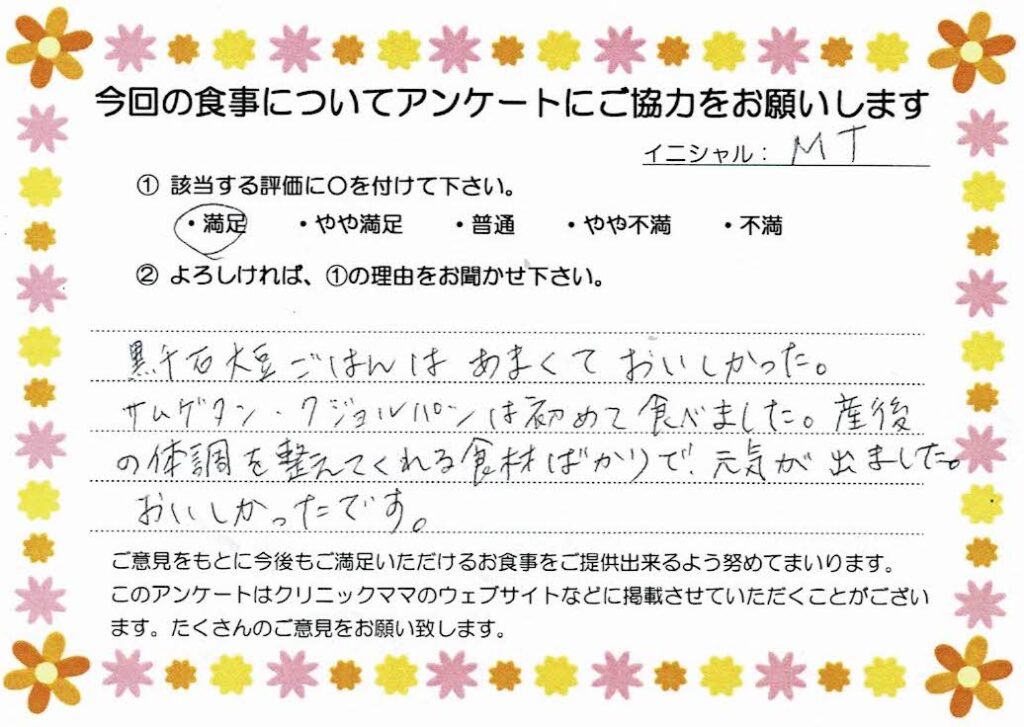 今回の食事についてアンケートにご協力をお願いします
イニシャル： MT
① 該当する評価に〇を付けて下さい。
・満足 ・やや満足 ・普通 ・やや不満 ・不満
② よろしければ、①の理由をお聞かせ下さい。
黒千石大豆ごはんは あまくて おいしかった。
サムゲタン・クジョルパンは初めて食べました。産後
の体調を整えてくれる食材ばかりで、元気が出ました。
おいしかったです。
ご意見をもとに今後もご満足いただけるお食事をご提供出来るよう努めてまいります。
このアンケートはクリニックママのウェブサイトなどに掲載させていただくことがござい
ます。たくさんのご意見をお願い致します。